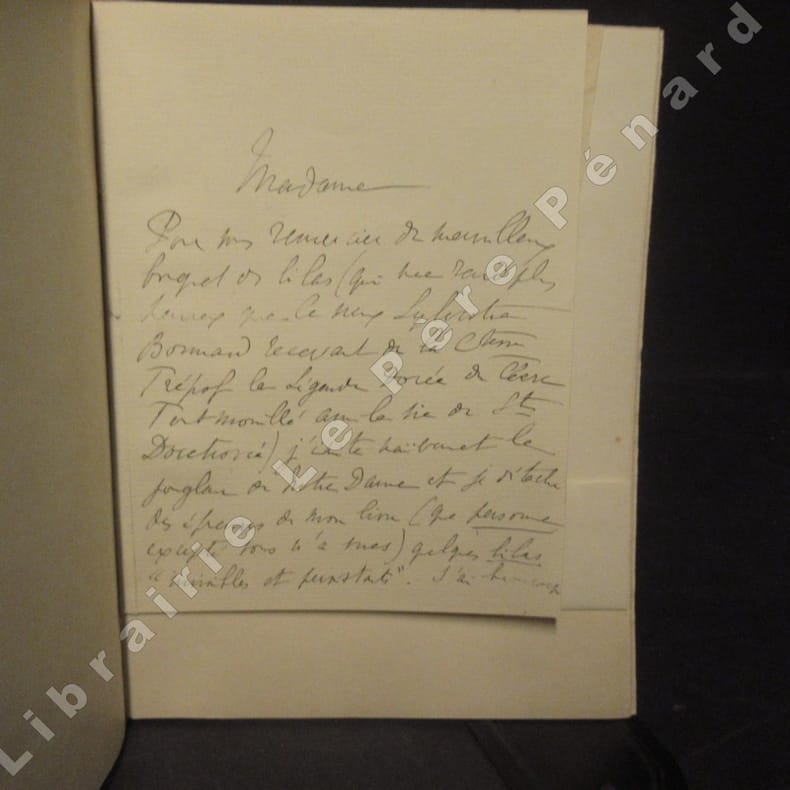 Madame
Pour vous remercier du merveilleux
bouquet de lilas (qui me rend plus
heureux que le vieux Sylvestre
Bonnard recevant de la Ctesse
Trépof la Légende Dorée du Clerc
Toutmouillé avec la vie de St
Droctovée) j'imite naïvement le
jongleur de Notre Dame et je détache
des épreuves de mon livre (que personne
excepté vous n'a vues) quelques lilas
"invisibles et persistants". J'ai beaucoup
Librairie Le Père Pénard